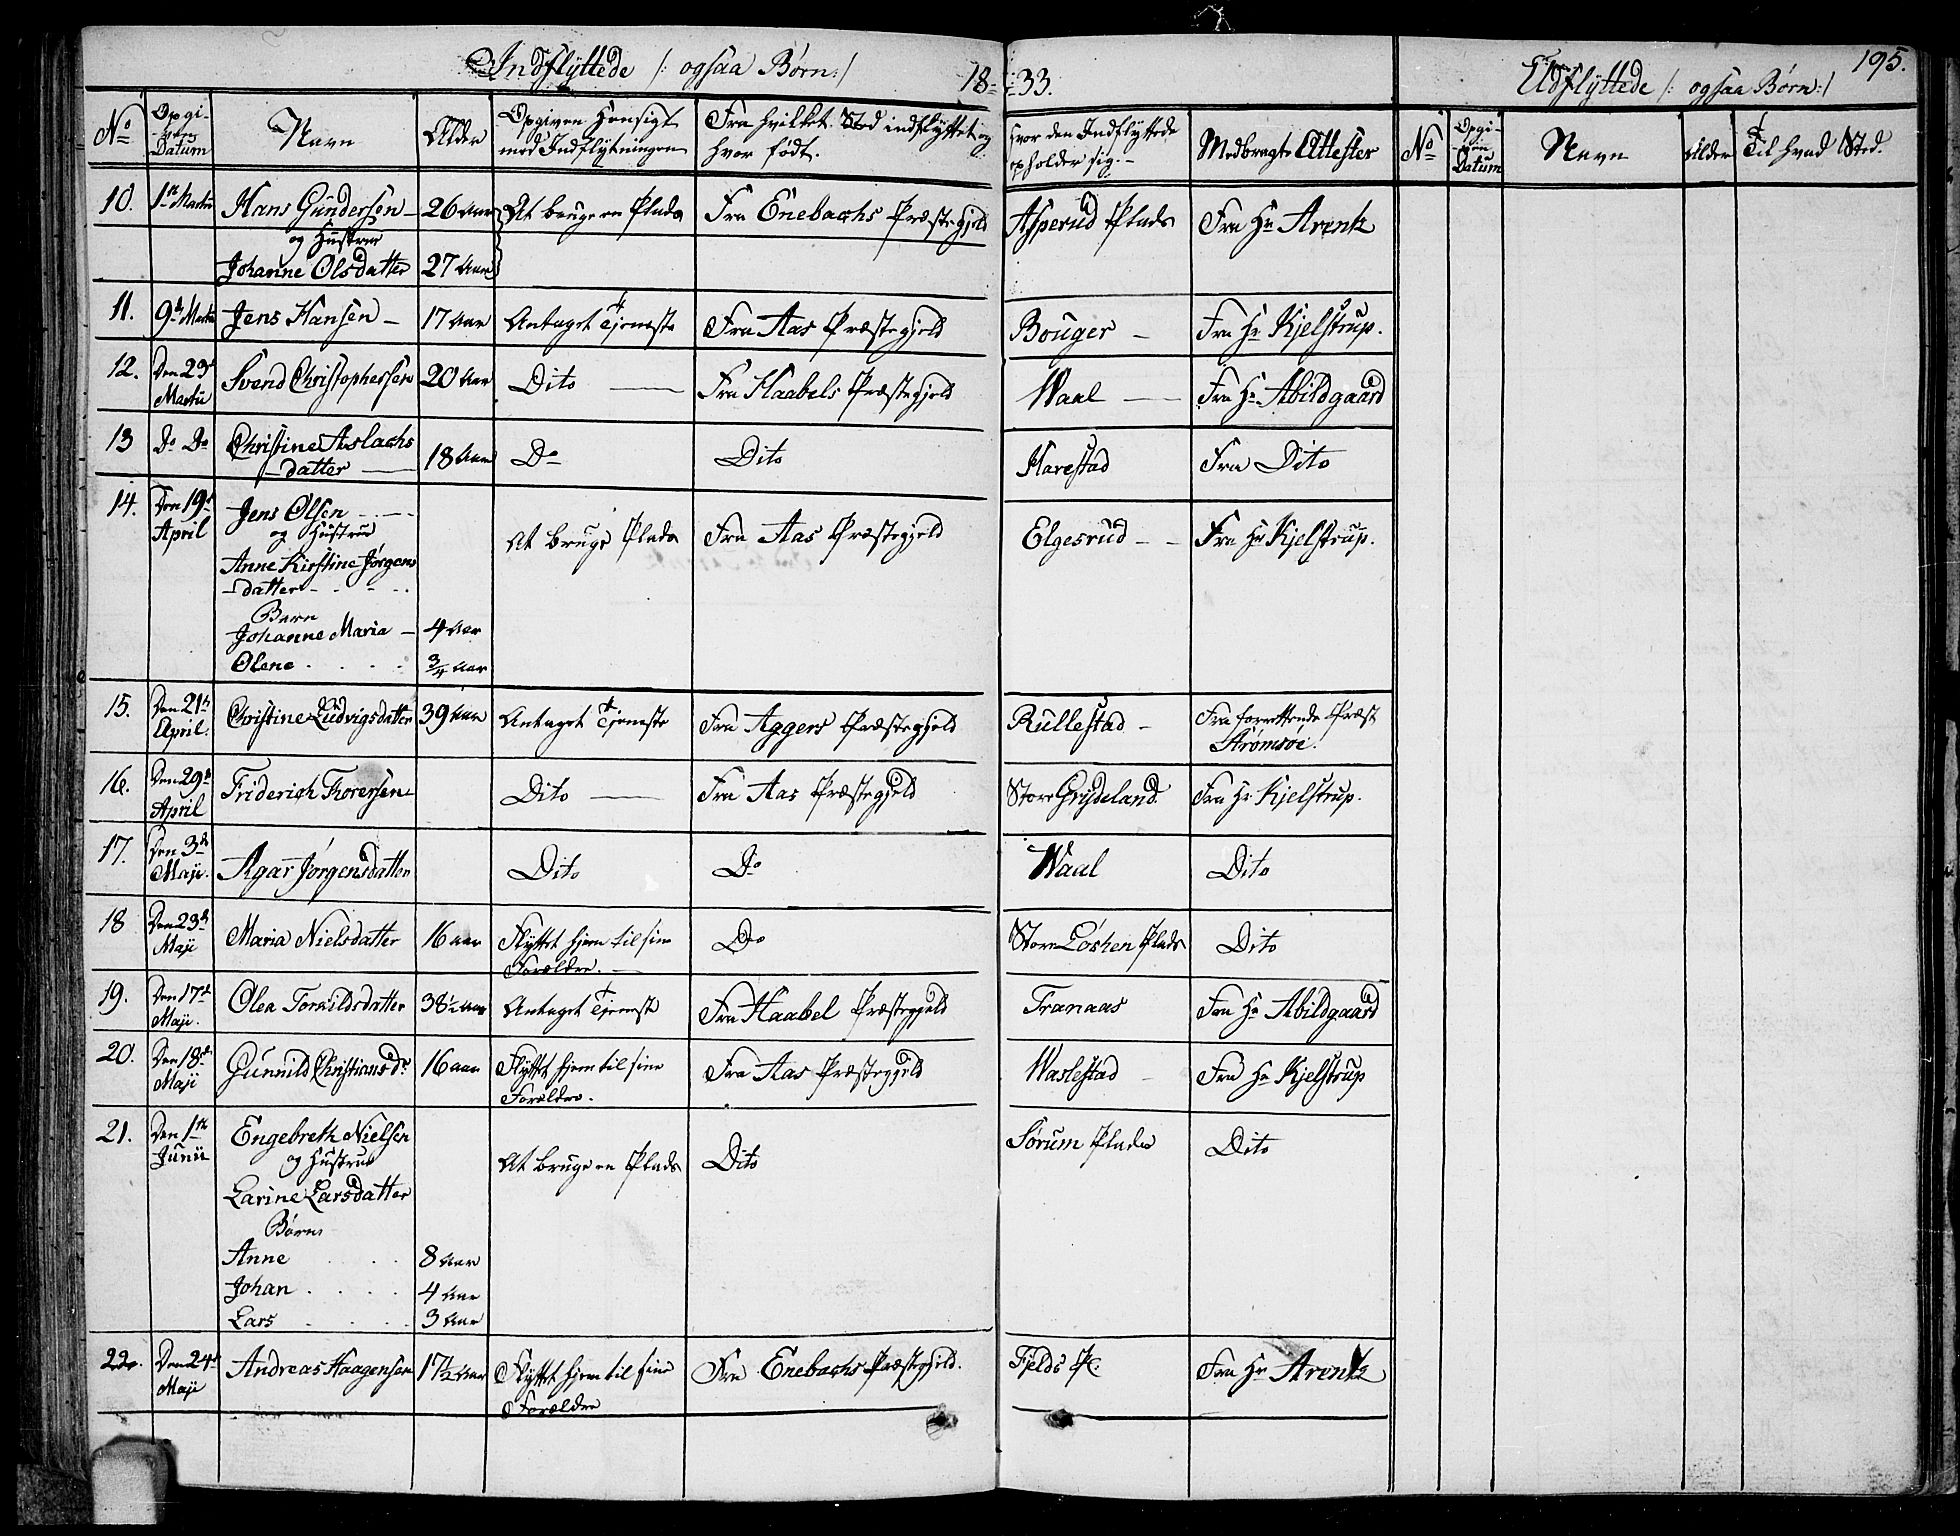 Indflyttede /: ogsaa Børn :/ 18=33. Udflyttede /: ogsaa Børn :/ 195.
No Opgi- ven Datum Navn Alder Opgiven Hensigt med Indflytningen Fra hvilket Sted indflyttet og hvor født. Hvor den Indflyttede opholder sig. Medbragte Attester No Opgi- ven Datum Navn Alder Til hvad Sted.
10. 1ste Martii Hans Gundersen 26 Aar At bruge en Plads Fra Enebachs Præstegjeld Asperud Plads Fra Hr Arentz
og Hustrue
Johanne Olsdatter 27 Aar
11. 9de Martii Jens Hansen 17 Aar Antaget Tjeneste Fra Aas Præstegjeld Bouger Fra Hr Kjelstrup.
12. Den 29 Svend Christophersen 20 Aar Dito Fra Haabels Præstegjeld Waal Fra Hr Abildgaard
Martii
13 Do Do Christine Aslachs 18 Aar Do Dito Harestad Fra Dito
-datter
14. Den 19de Jens Olsen At bruge Plads Fra Aas Præstegjeld Elgesrud Fra Hr Kjelstrup.
April og Hustrue
Anne Kirstine Jørgens
-datter
Børn
Johanne Maria 4 Aar
Olene 3/4 Aar
15. Den 21de Christine Ludvigsdatter 39 Aar Antaget Tjeneste Fra Aggers Præstegjeld Rullestad Fra forrettende Præst
April. Strømsøe.
16. Den 29de Friderich Thoresen Dito Fra Aas Præstegjeld Store Grisdeland Fra Hr Kjelstrup.
April
17. Den 3de Agar Jørgensdatter Dito Do Waal Dito
Maji.
18 Den 23de Maria Nielsdatter 16 aar Flyttet hjem til sine Do Store Løshen Plads Dito
Maji Forældre.
19. Den 17de Olea Torvildsdatter 38½ Aar Antaget Tjeneste Fra Haabel Præstegjeld Tranaas Fra Hr Abildgaard
Maji.
20. Den 18de Gunnild Christiansdr 16 aar Flyttet hjem til sine Fra Aas Præstegjeld Waslestad Fra Hr Kjelstrup
Maji Forældre.
21. Den 1ste Engebreth Nielsen At bruge en Plads Dito Sørum Plads Dito
Junii og Hustrue
Larine Larsdatter
Børn
Anne 8 Aar
Johan 4 Aar
Lars 3 Aar
22. Den 24de Andreas Haagensen 17½ Aar Flyttet hjem til sine Fra Enebachs Præstegjeld. Fjelds Pl. Fra Hr Arentz
Maji Forældre